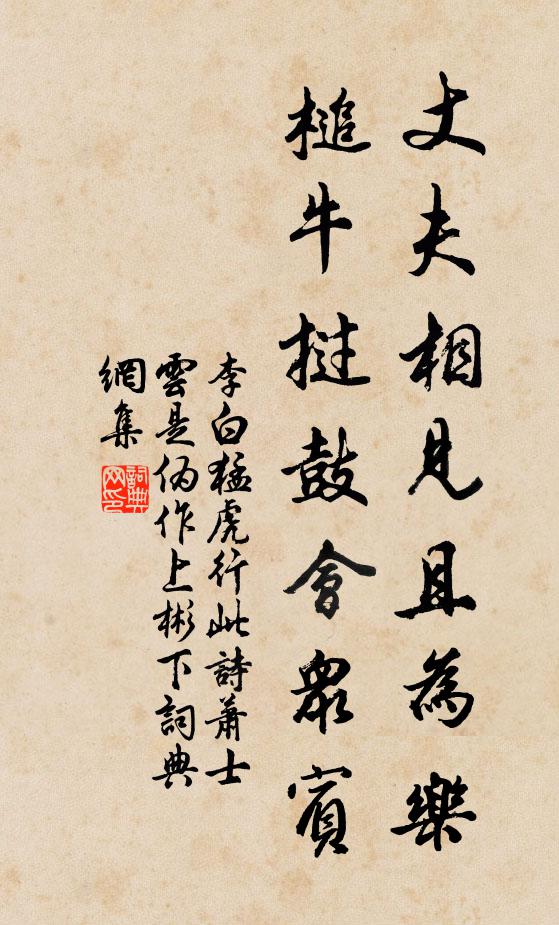 丈夫相見且為樂
槌牛撾鼓會眾賓
李白猛虎行此詩蕭士
雲是偽作上彬下詞典
網集
詞典網印